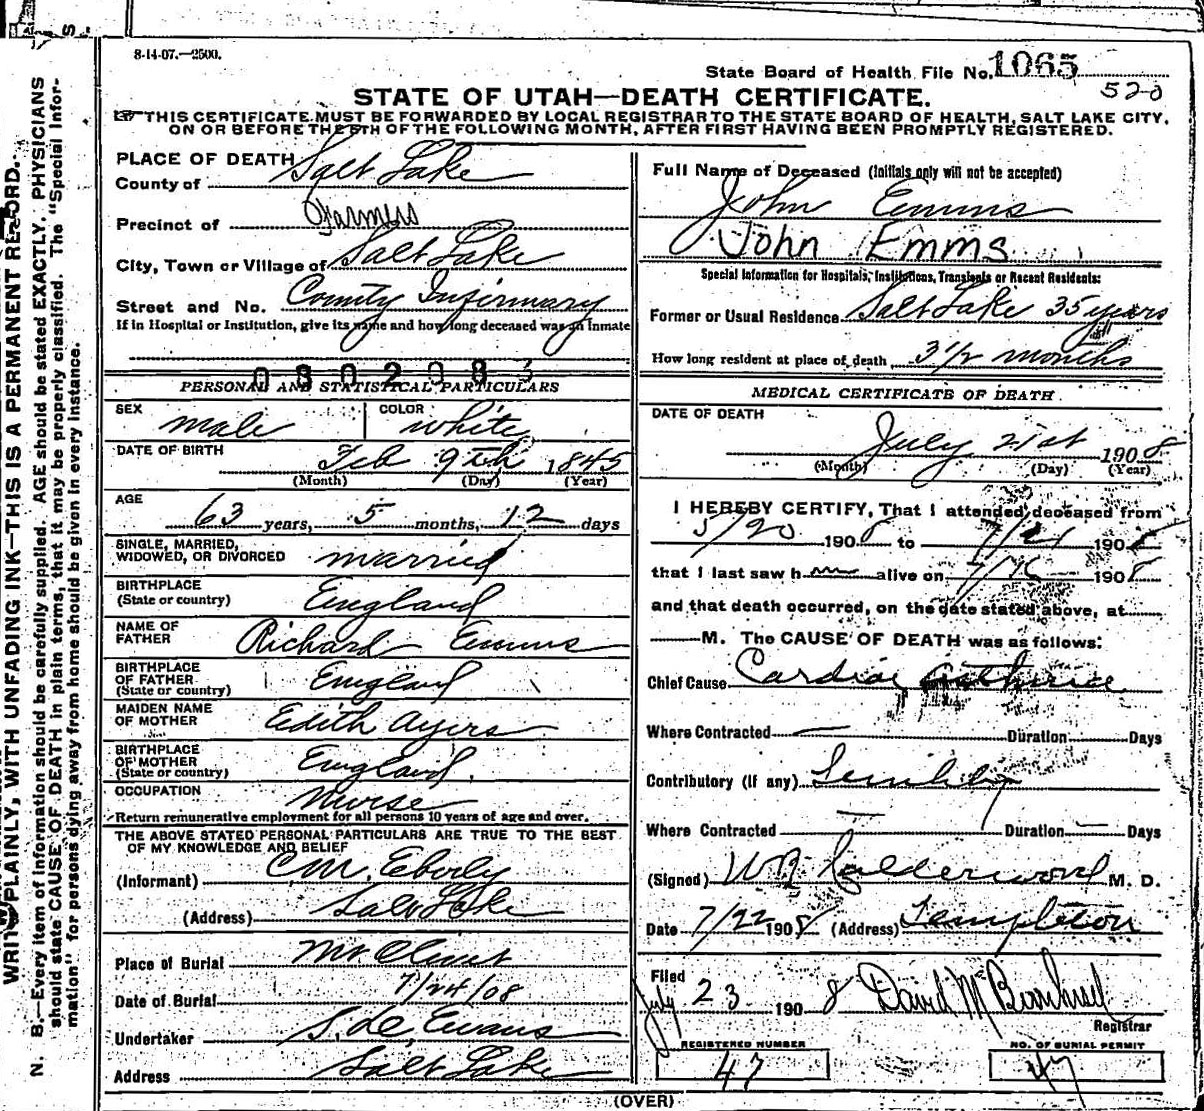 8-14-07.—2500.
State Board of Health File No. 1065
520
STATE OF UTAH—DEATH CERTIFICATE.
THIS CERTIFICATE MUST BE FORWARDED BY LOCAL REGISTRAR TO THE STATE BOARD OF HEALTH, SALT LAKE CITY,
ON OR BEFORE THE 5TH OF THE FOLLOWING MONTH, AFTER FIRST HAVING BEEN PROMPTLY REGISTERED.
WRITE PLAINLY, WITH UNFADING INK—THIS IS A PERMANENT RECORD.
N. B.—Every item of information should be carefully supplied. AGE should be stated EXACTLY. PHYSICIANS
should state CAUSE OF DEATH in plain terms, that it may be properly classified. The "Special Infor-
mation" for persons dying away from home should be given in every instance.
PLACE OF DEATH
County of Salt Lake
Precinct of Farmers
City, Town or Village of Salt Lake
Street and No. County Infirmary
If in Hospital or Institution, give its name and how long deceased was an inmate
PERSONAL AND STATISTICAL PARTICULARS
SEX male COLOR white
DATE OF BIRTH Feb 9th 1845
(Month) (Day) (Year)
AGE
63 years, 5 months, 12 days
SINGLE, MARRIED,
WIDOWED, OR DIVORCED married
BIRTHPLACE
(State or country) England
NAME OF
FATHER Richard Emms
BIRTHPLACE
OF FATHER
(State or country) England
MAIDEN NAME
OF MOTHER Edith Ayers
BIRTHPLACE
OF MOTHER
(State or country) England.
OCCUPATION Nurse
Return remunerative employment for all persons 10 years of age and over.
THE ABOVE STATED PERSONAL PARTICULARS ARE TRUE TO THE BEST
OF MY KNOWLEDGE AND BELIEF
(Informant) C.M. Eberly
(Address) Salt Lake
Place of Burial Mt Olivet
Date of Burial 7/24/08
Undertaker S. de. Evans
Address Salt Lake
Full Name of Deceased (Initials only will not be accepted)
John Emms
John Emms
Special Information for Hospitals, Institutions, Transients or Recent Residents:
Former or Usual Residence Salt Lake 35 years
How long resident at place of death 3 1/2 months
MEDICAL CERTIFICATE OF DEATH.
DATE OF DEATH
July 21st 1908
(Month) (Day) (Year)
I HEREBY CERTIFY, That I attended deceased from
5/20 1908 to 7/21 1908
that I last saw h im alive on 7/16 1908
and that death occurred, on the date stated above, at
M. The CAUSE OF DEATH was as follows:
Chief Cause Cardiac
Where Contracted Duration Days
Contributory (if any) Senility
Where Contracted Duration Days
(Signed) W R Calderwood M. D.
Date 7/22 1908 (Address) Templeton
Filed
July 23 1908 David M
Registrar
REGISTERED NUMBER
47
NO. OF BURIAL PERMIT
47
(OVER)